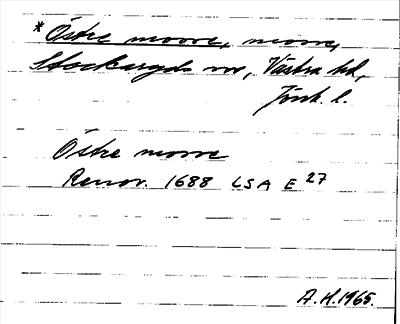 *Östre moore, moore,
Stockaryds sn, Västra hd,
Jönk. l.
Östre moore
Renov. 1688 LSA E 27
A.H. 1965.